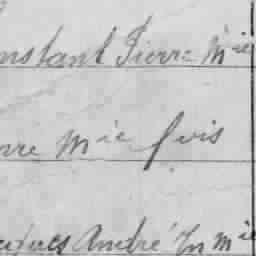 nstant Pierre Mie
rre Mie fois
cques André Jn Mie